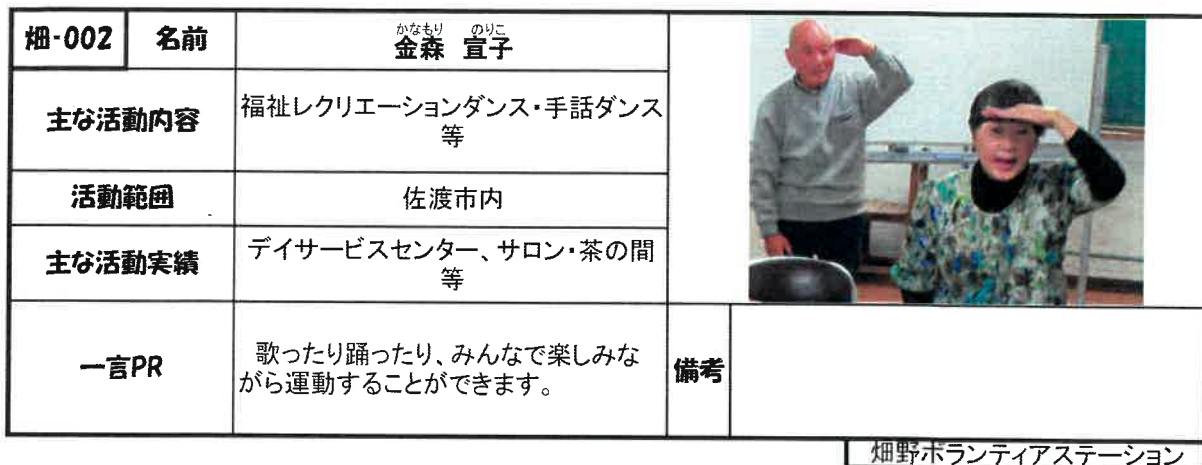 畑-002 名前 金森 宣子
かなもり のりこ
主な活動内容
福祉レクリエーションダンス・手話ダンス
等
活動範囲 佐渡市内
主な活動実績
デイサービスセンター、サロン・茶の間
等
一言PR
歌ったり踊ったり、みんなで楽しみな
がら運動することができます。
備考
畑野ボランティアステーション